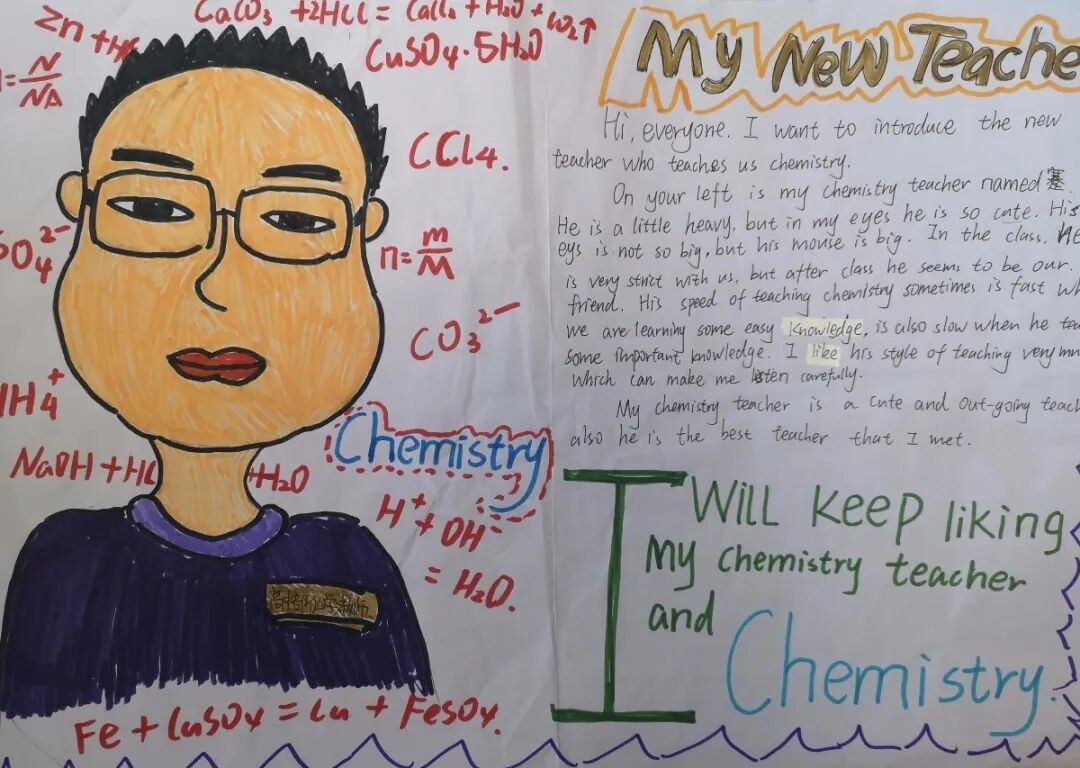 Zn + H
CaCO3 + 2HCl = CaCl2 + H2O + CO2↑
CuSO4·5H2O
N
NA
CCl4.
SO4 2-
n = m/M
CO3 2-
NH4+
Chemistry
NaOH + HCl
+ H2O
H+ + OH-
= H2O.
Fe + CuSO4 = Cu + FeSO4.
My New Teache
Hi, everyone. I want to introduce the new
teacher who teaches us chemistry.
On your left is my chemistry teacher named 塞.
He is a little heavy, but in my eyes he is so cute. His
eys is not so big, but his mouse is big. In the class, He
is very strict with us, but after class he seems to be our.
friend. His speed of teaching chemistry sometimes is fast wh
we are learning some easy knowledge, is also slow when he tea
some important knowledge. I like his style of teaching very mu
which can make me listen carefully.
My chemistry teacher is a cute and out-going teach
also he is the best teacher that I met.
I Will keep liking
My chemistry teacher
and
Chemistry.